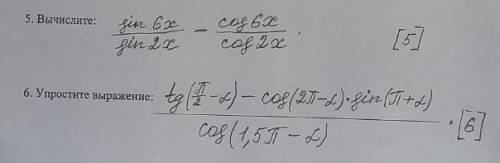 5. Вычислите: sin 6x / sin 2x − cos 6x / cos 2x. [5]
6. Упростите выражение: (tg(π/2 − α) − cos(2π − α) · sin(π + α)) / cos(1,5π − α) . [6]